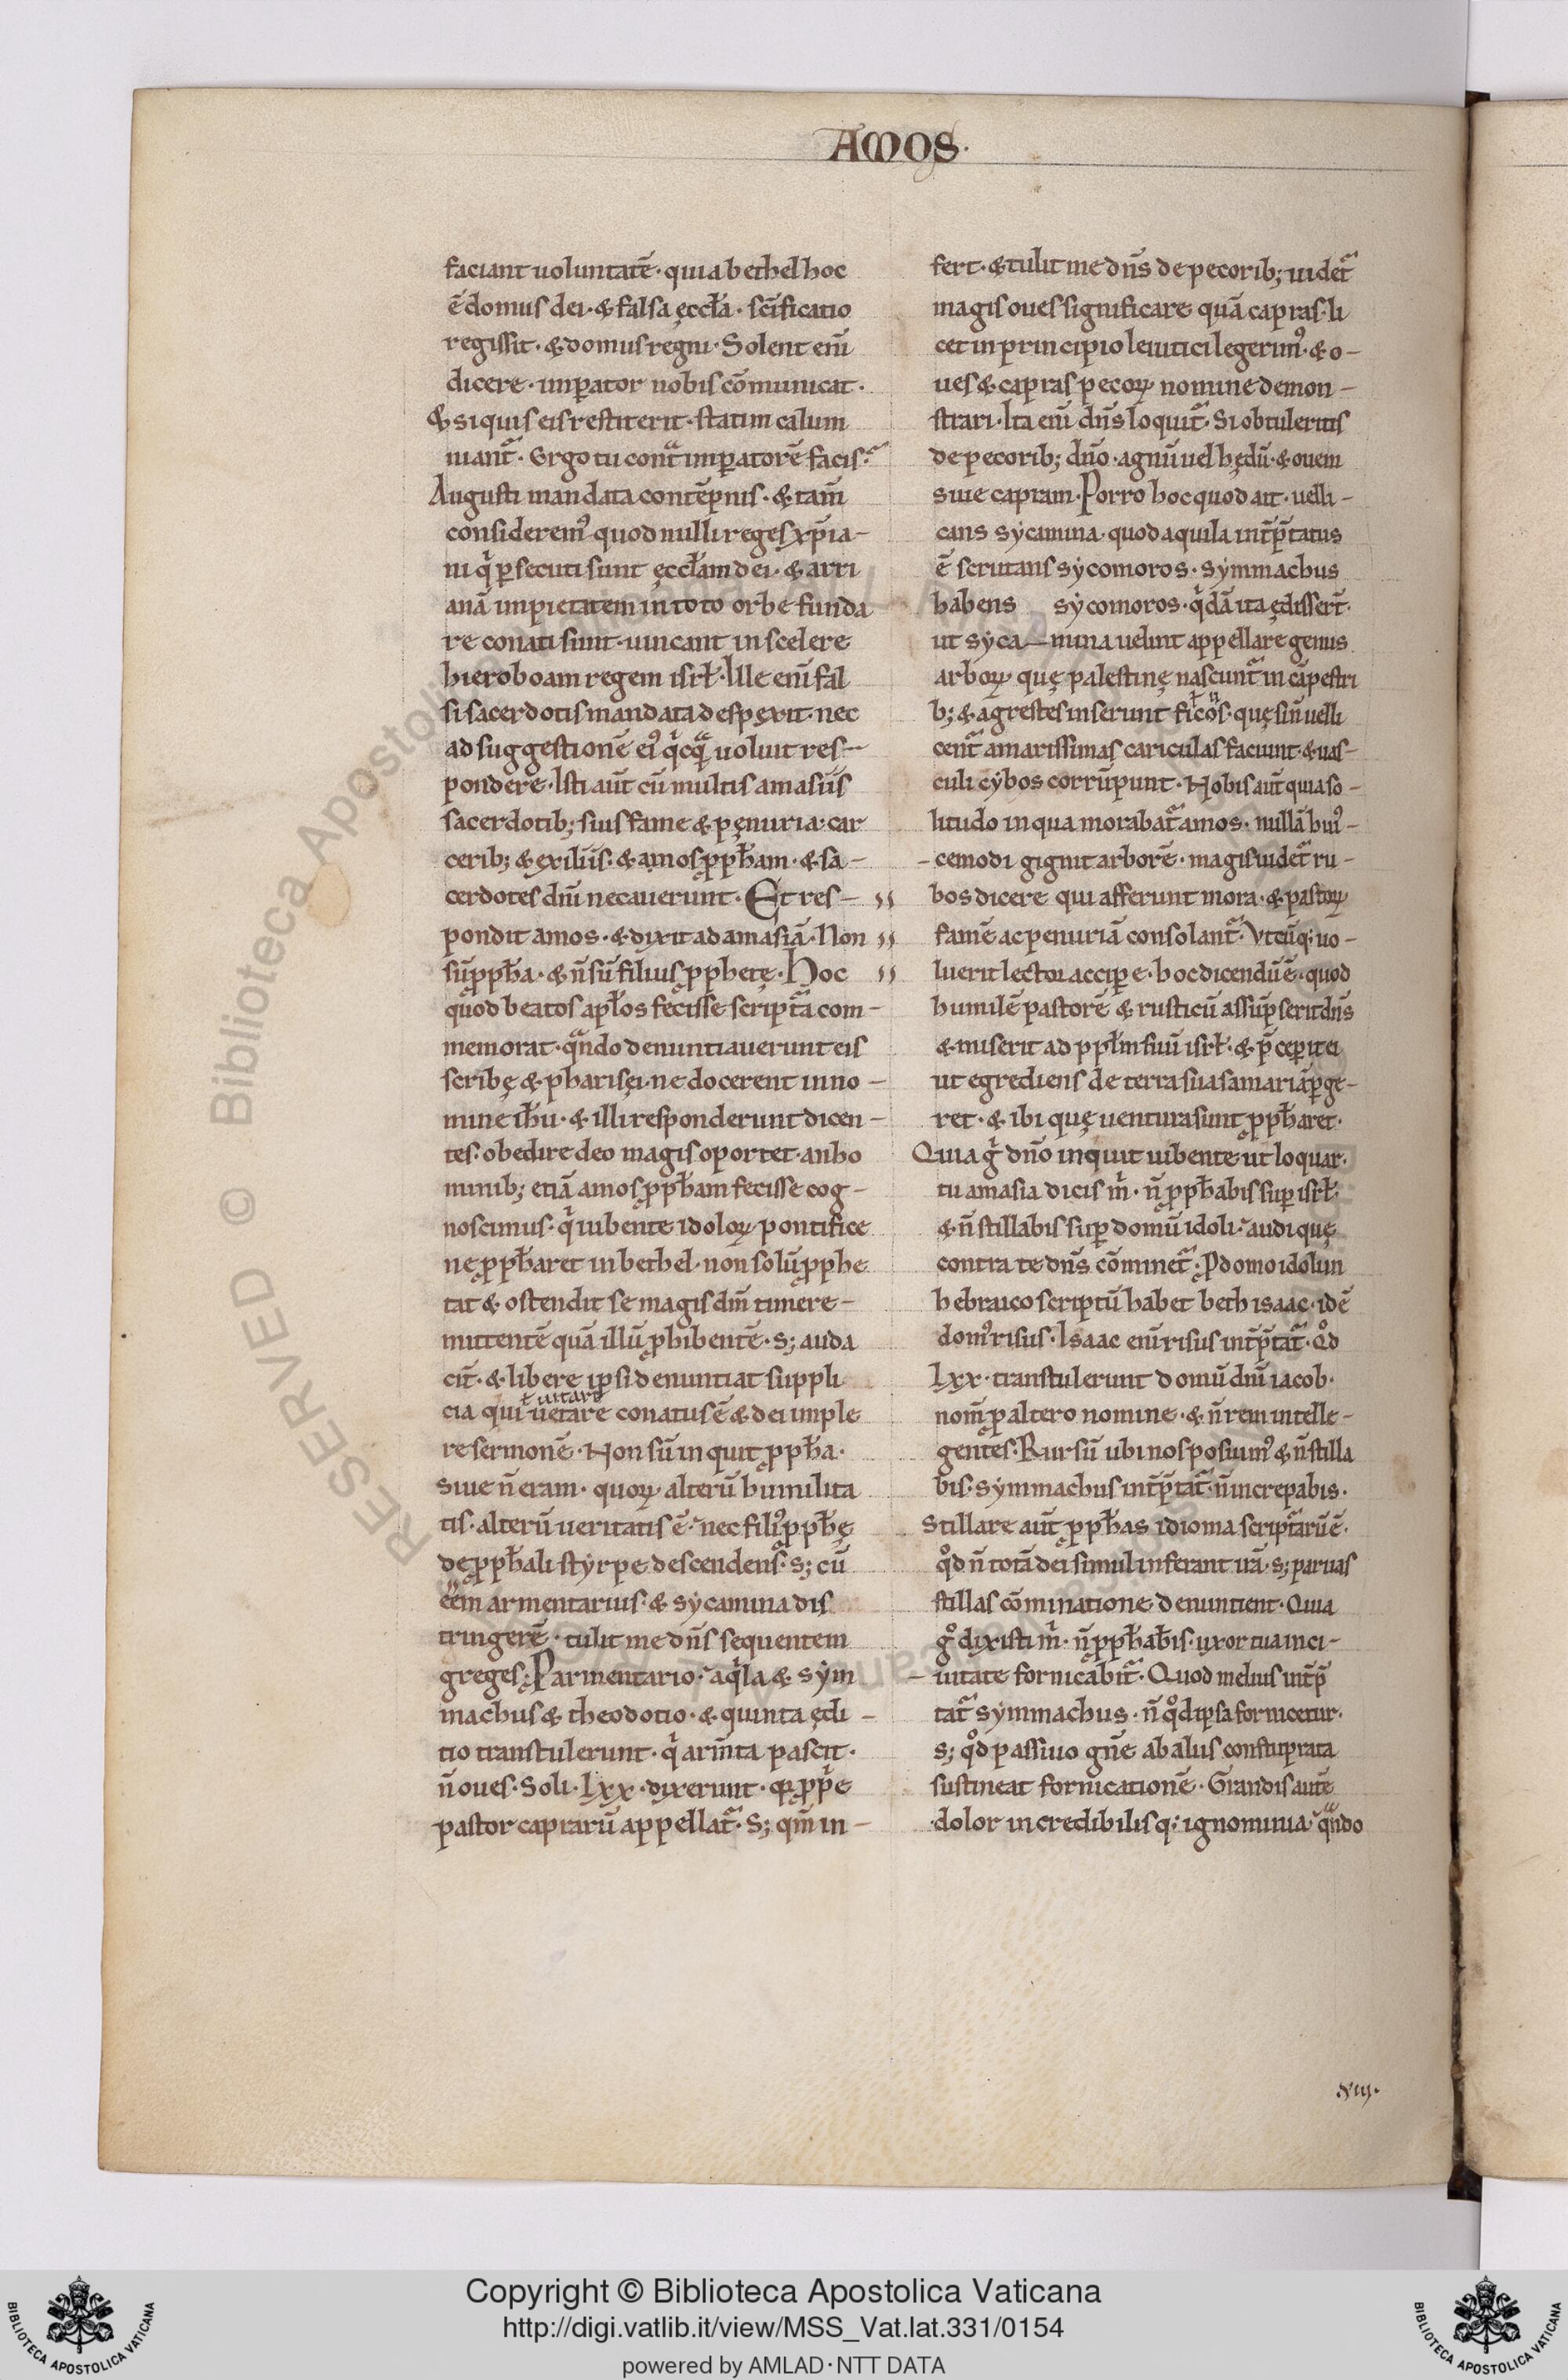 AMOS.
faciant uoluntatē· quia bethel hoc
ē domus dei· & falsa ęccła· scīficatio
regis sit· & domus regni· Solent eni̅
dicere· imꝑator nobis cōmunicat·
& siquis eis restiterit· statim calum
niant᷑· Ergo tu cont̾ imꝑatorē facis·
Augusti mandata contēpnis· & tam̄
considerem᷒ quod nulli reges xp̄ia-
ni q̇ ꝑsecuti sunt ęccłam dei· & arri
anā impietatem in toto orbe funda
re conati sunt· uincant in scelere
hieroboam regem isrł· Ille eni̅ fal
si sacerdotis mandata despexit· nec
ad suggestionē ei᷒ q̇cq̾ uoluit res-
pondere· Isti aut̄ cū multis amasiis
sacerdotib; suis fame & pęnuria· car
cerib; & exiliis· & amos ꝓph̄am· & sa-
cerdotes dn̄i necauerunt· Et res-
pondit amos· & dixit ad amasiā· Non
sū ꝓph̄a· & n̄ sū filius ꝓphetę· Hoc
quod beatos apłos fecisse script̾a com-
memorat· q̾ndo denuntiauerunt eis
scribę & pharisęi· ne docerent in no-
mine ih̄u· & illi responderunt dicen-
tes· obedire deo magis oportet· an ho
minib; etiā amos ꝓph̄am fecisse cog-
noscimus· q̇ iubente idoloꝝ pontifice
ne ꝓph̄aret in bethel· non solū ꝓphe
tat & ostendit se magis dm̄ timere-
mittentē quā illū ꝓhibentē· s; auda
cit̄· & libere ipsi denuntiat suppli
ł uitare
cia qui uetare conatus ē & dei imple
re sermonē· Non sū inquit ꝓph̄a·
siue n̄ eram· quoꝝ alterū humilita
tis· alterū ueritatis ē· nec fili᷒ ꝓph̄ę
de ꝓph̄ali styrpe descendens· s; cū
eēm armentarius· & sycamina dis
tringerē· tulit me dn̄s sequentem
greges· P armentario· aq̇la & sym
machus & theodotio· & quinta ędi-
tio transtulerunt· q̇ arm̄ta pascit·
n̄ oues· Soli· lxx· dixerunt· qꝛ ꝓṗe
pastor caprarū appellat᷑· S; qm̄ in-
fert· & tulit me dn̄s de pecorib; uidet᷑
magis oues significare quā capras· li
cet in principio leuitici legerim᷒· & o-
ues & capras pecoꝝ nomine demon-
strari· Ita eni̅ dn̄s loquit᷑· Si obtuleritis
de pecorib; dn̄o· agnū uel hędū· & ouem
siue capram· Porro hoc quod ait· uelli-
cans sycamina· quod aquila int̄p̄tatus
ē scrutans sycomoros· symmachus
habens sycomoros· q̇dā ita ędissert̄·
ut syca-mina uelint appellare genus
arboꝝ quę palestinę nascunt᷑ in cāpestri
b; & agrestes inserunt ficos· quę si n̄ uelli
cent᷑ amarissimas cariculas faciunt· & uas-
culi cybos corrūpunt· Nobis aut̄ quia so-
litudo in qua morabat᷑ amos· nullā hui᷒-
cemodi gignit arborē· magis uidet᷑ ru-
bos dicere qui afferunt mora· & pastoꝝ
famē ac penuriā consolant᷑· Vtcūq; uo-
luerit lector accipe· hoc dicendū ē· quod
humilē pastorē & rusticū assūpserit dn̄s
& miserit ad ppłm suū isrł· & p̄ceperit ei
ut egrediens de terra sua samariā ꝑge-
ret· & ibi quę uentura sunt ꝓph̄aret·
Quia g̊ dn̄o inquit iubente ut loquar·
tu amasia dicis ṁ· n̄ ꝓph̄abis suꝑ isrł·
& n̄ stillabis suꝑ domū idoli· audi quę
contra te dn̄s cōminet᷑· P domo idoli in
hebraico scriptū habet beth isaac· idē
dom᷒ risus· Isaac eni̅ risus int̄p̄tat᷑· Qd̊
lxx· transtulerunt domū dn̄i iacob·
nom̄ ꝓ altero nomine· & n̄ rem intelle-
gentes· Rursū ubi nos posuim᷒ & n̄ stilla
bis· symmachus int̄p̄tat᷑· n̄ increpabis·
Stillare aut̄ ꝓph̄as idioma script̾arū ē·
qd̊ n̄ totā dei simul inferant irā· s; paruas
stillas cōminatione denuntient· Quia
g̊ dixisti ṁ· n̄ ꝓph̄abis· uxor tua in ci-
uitate fornicabit᷑· Quod melius int̄p̄
tat᷑ symmachus· n̄ qd̊ ipsa fornicetur·
s; qd̊ passiuo gn̄e ab aliis constuprata
sustineat fornicationē· Grandis autē
dolor incredibilisq; ignominia· q̾ndo
Copyright © Biblioteca Apostolica Vaticana
http://digi.vatlib.it/view/MSS_Vat.lat.331/0154
powered by AMLAD·NTT DATA
BIBLIOTECA APOSTOLICA VATICANA
BIBLIOTECA APOSTOLICA VATICANA